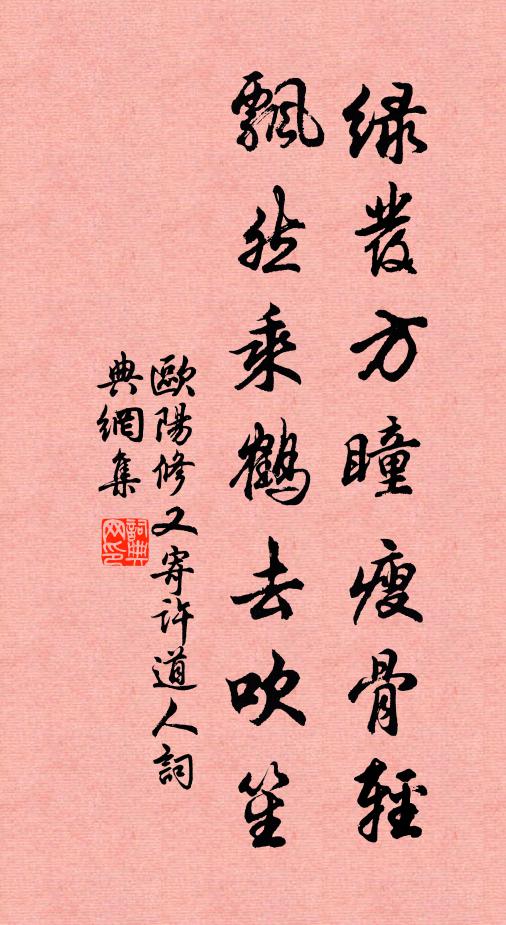 緑發方瞳瘦骨輕
飄然乘鶴去吹笙
歐陽修又寄許道人詞
典網集
詞典
网印